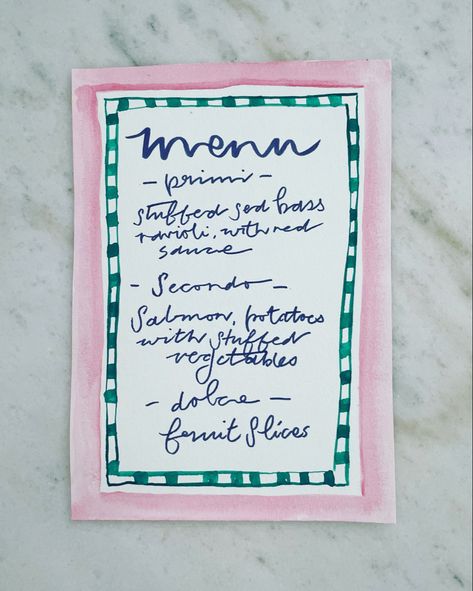 menu
- primi -
stuffed sea bass
ravioli, with red
sauce
- Secondo -
Salmon, potatoes
with stuffed
vegetables
- dolce -
fruit slices